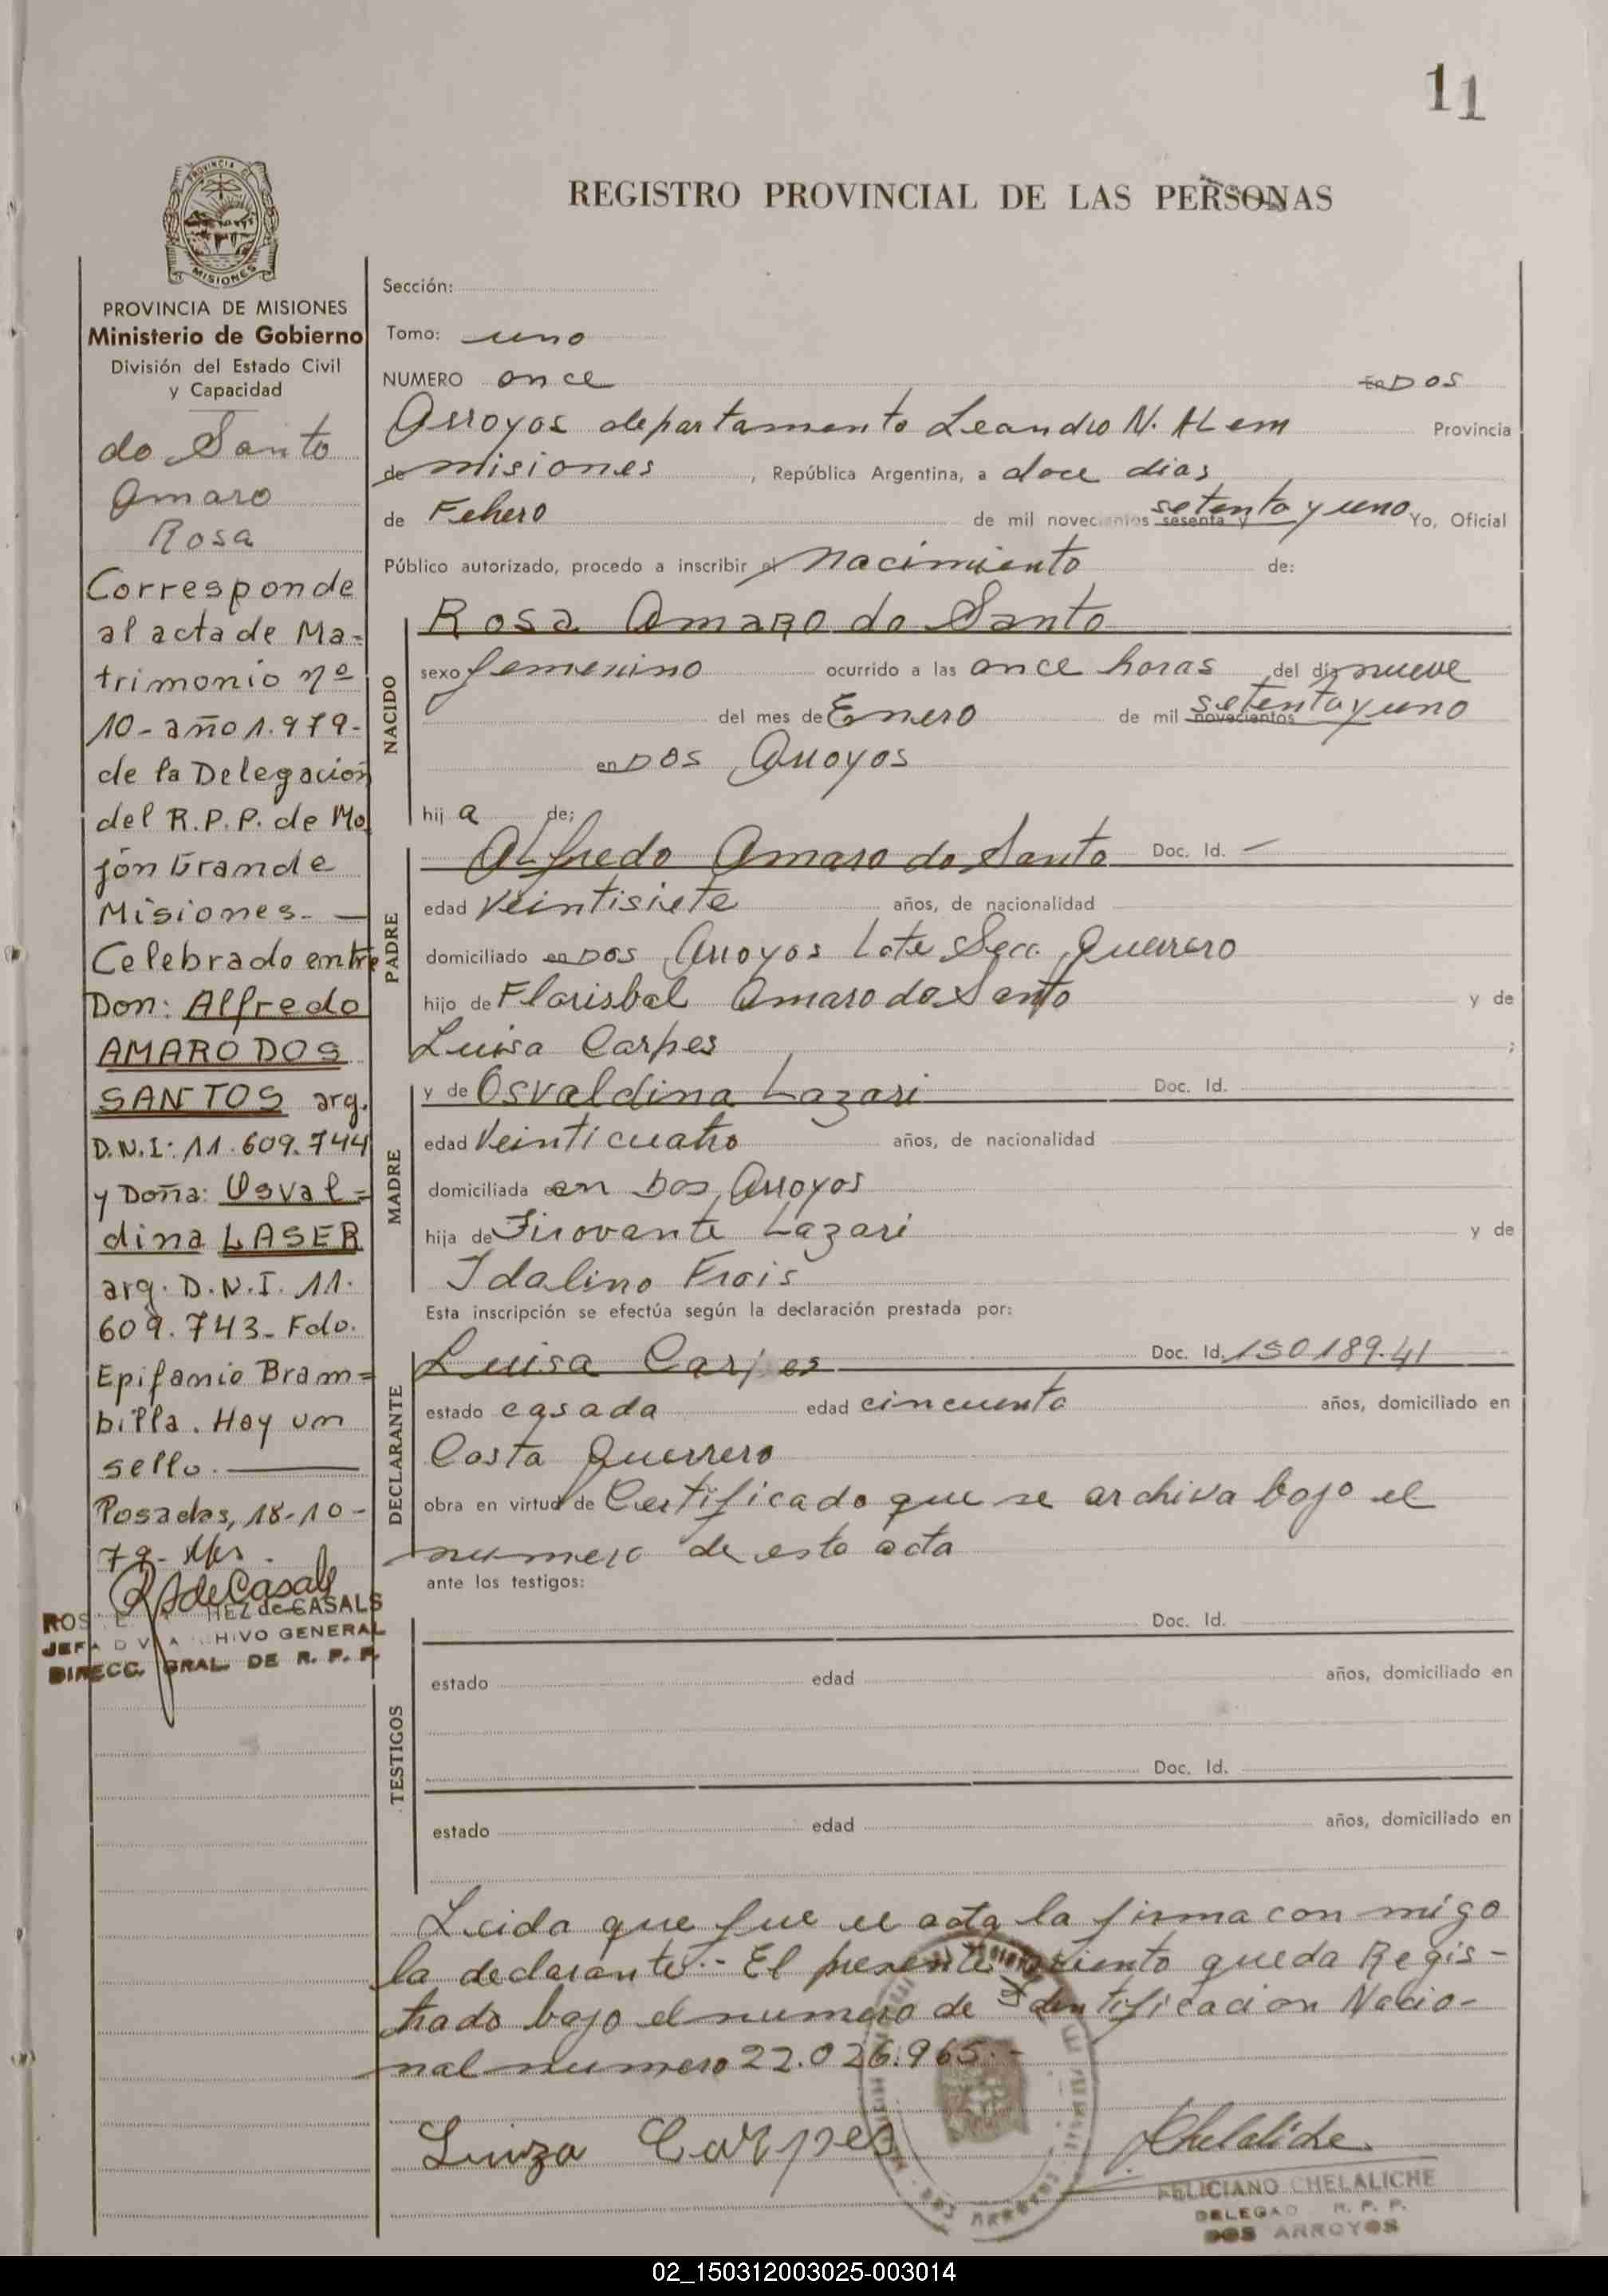 11
REGISTRO PROVINCIAL DE LAS PERSONAS
PROVINCIA DE
MISIONES
PROVINCIA DE MISIONES
Ministerio de Gobierno
División del Estado Civil
y Capacidad
do Santo
Amaro
Rosa
Corresponde
al acta de Ma=
trimonio nº
10-año 1.979-
de la Delegación
del R.P.P. de Mo
jón Grande
Misiones.—
Celebrado entre
Don: Alfredo
AMARO DOS
SANTOS arg.
D.N.I: 11.609.744
y Doña: Osval=
dina LASER
arg. D.N.I. 11.
609.743- Fdo.
Epifanio Bram=
billa. Hay un
sello.—
Posadas, 18-10-
79-
ROS HEZ de CASALS
JEFA DIV A CHIVO GENERAL
DIRECC. GRAL. DE R. P. P.
Sección:
Tomo: uno
NUMERO once En DOS
Arroyos departamento Leandro N. ALem Provincia
de misiones, República Argentina, a doce dias
de Febero de mil novecientos sesenta y setenta y uno Yo, Oficial
Público autorizado, procedo a inscribir el Nacimiento de:
NACIDO
Rosa Amaro do Santo
sexo femenino ocurrido a las once horas del día nueve
del mes de Enero de mil novecientos setenta y uno
en DOS Arroyos
hija de:
PADRE
ALfredo Amaro do Santo Doc. Id. —
edad veintisiete años, de nacionalidad
domiciliado en DOS Arroyos Lote Secc. Guerrero
hijo de Florisbal Amaro do Santo y de
Luisa Carpes;
MADRE
y de Osvaldina Lazari Doc. Id.
edad Veinticuatro años, de nacionalidad
domiciliada en Dos Arroyos
hija de Firovante Lazari y de
Idalino Frois
Esta inscripción se efectúa según la declaración prestada por:
DECLARANTE
Luisa Carpes Doc. Id. 150189.41
estado casada edad cincuenta años, domiciliado en
Costa Guerrero
obra en virtud de Certificado que se archiva bajo el
numero de esta acta
ante los testigos:
TESTIGOS
Doc. Id.
estado edad años, domiciliado en
Doc. Id.
estado edad años, domiciliado en
Leida que fue el acta la firma con migo
la declarante.- El presente asiento queda Regis-
trado bajo el numero de Identificacion Nacio-
nal numero 22.026.965.-
Luiza Carpes
Chelaliche
FELICIANO CHELALICHE
DELEGADO R. P. P.
DOS ARROYOS
DOS ARROYOS
02_150312003025-003014